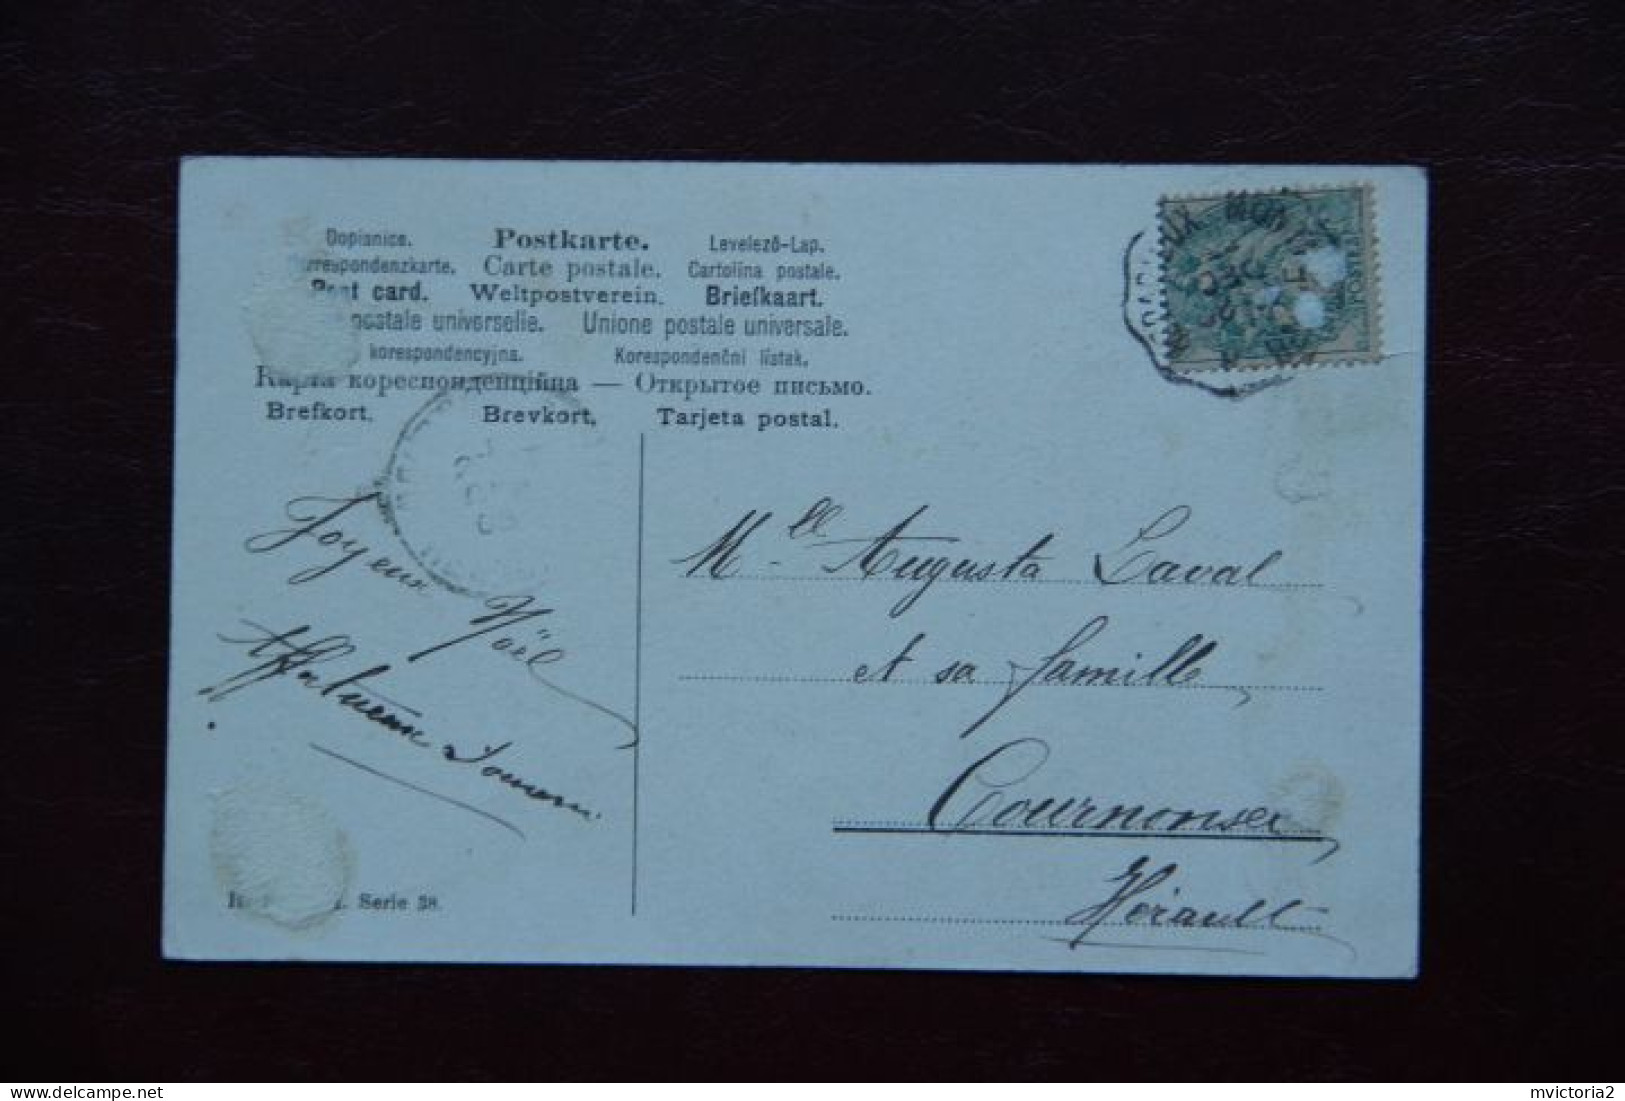 Dopisnice. Postkarte. Levelező-Lap.
rrespondenzkarte. Carte postale. Cartolina postale.
Post card. Weltpostverein. Briefkaart.
postale universelle. Unione postale universale.
korespondencyjna. Korespondenční lístek.
Карта корреспонденційна — Открытое письмо.
Brefkort. Brevkort. Tarjeta postal.
Joyeux Noël
Mlle Augusta Laval
et sa famille
Cournonsec
Hérault
Serie 38.
POSTES
delcampe.net
mvictoria2